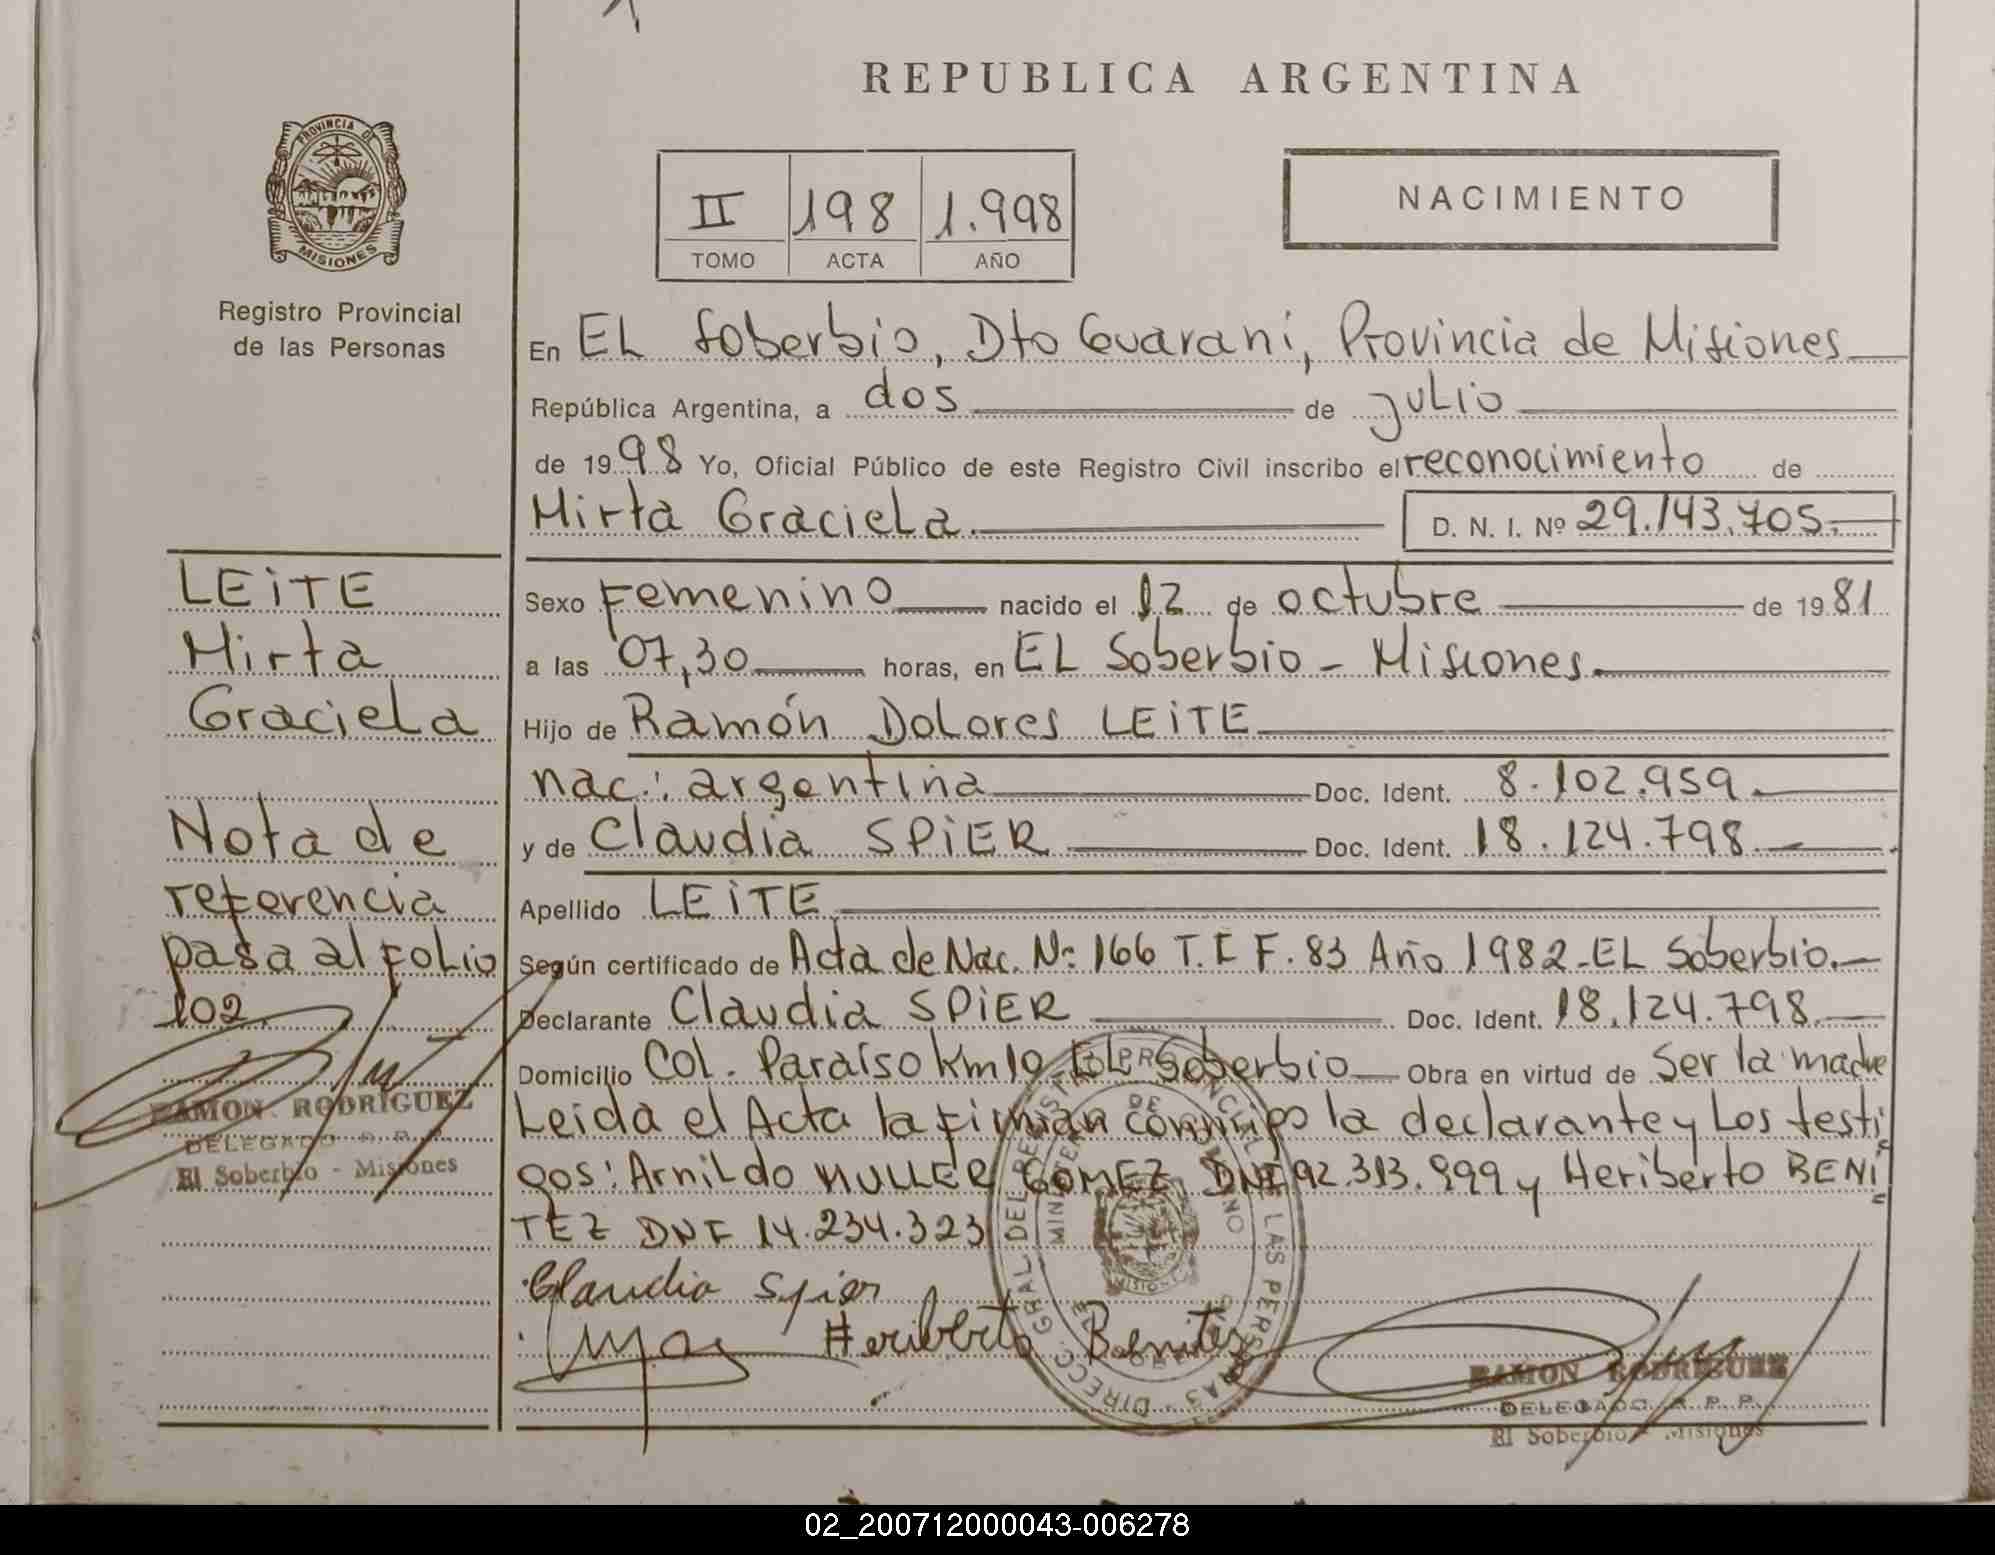 REPUBLICA ARGENTINA
PROVINCIA DE
MISIONES
Registro Provincial
de las Personas
II 198 1.998
TOMO ACTA AÑO
NACIMIENTO
En EL Soberbio, Dto Guaraní, Provincia de Misiones
República Argentina, a dos de julio
de 1998 Yo, Oficial Público de este Registro Civil inscribo el reconocimiento de
Mirta Graciela. D. N. I. Nº 29.143.705.
LEITE
Mirta
Graciela
Sexo Femenino nacido el 12 de octubre de 1981
a las 07,30 horas, en EL Soberbio - Misiones.
Hijo de Ramón Dolores LEITE
nac: argentina Doc. Ident. 8.102.959.
y de Claudia SPIER Doc. Ident. 18.124.798.
Apellido LEITE
Según certificado de Acta de Nac. Nº 166 T. I F. 83 Año 1982 - EL Soberbio.
Declarante Claudia SPIER Doc. Ident. 18.124.798.
Domicilio Col. Paraíso Km 10 EL Soberbio Obra en virtud de Ser la madre
Leida el Acta la firman conmigo la declarante y Los testi
gos: Arnildo MULLER GOMEZ DNI 92.313.999 y Heriberto BENI
TEZ DNI 14.234.323
Nota de
referencia
pasa al folio
102
RAMON RODRIGUEZ
DELEGADO R. P. P.
El Soberbio - Misiones
Claudia Spier
Heriberto Benitez
RAMON RODRIGUEZ
DELEGADO R. P. P.
El Soberbio - Misiones
02_200712000043-006278